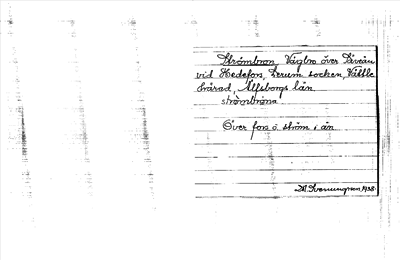 Strömbron, Vägbro över Säveån
vid Hedefors, Lerum socken, Vättle
härad, Älfsborgs län.
strömbrona
Över fors o. ström i ån.
M. Svenungsson 1938.